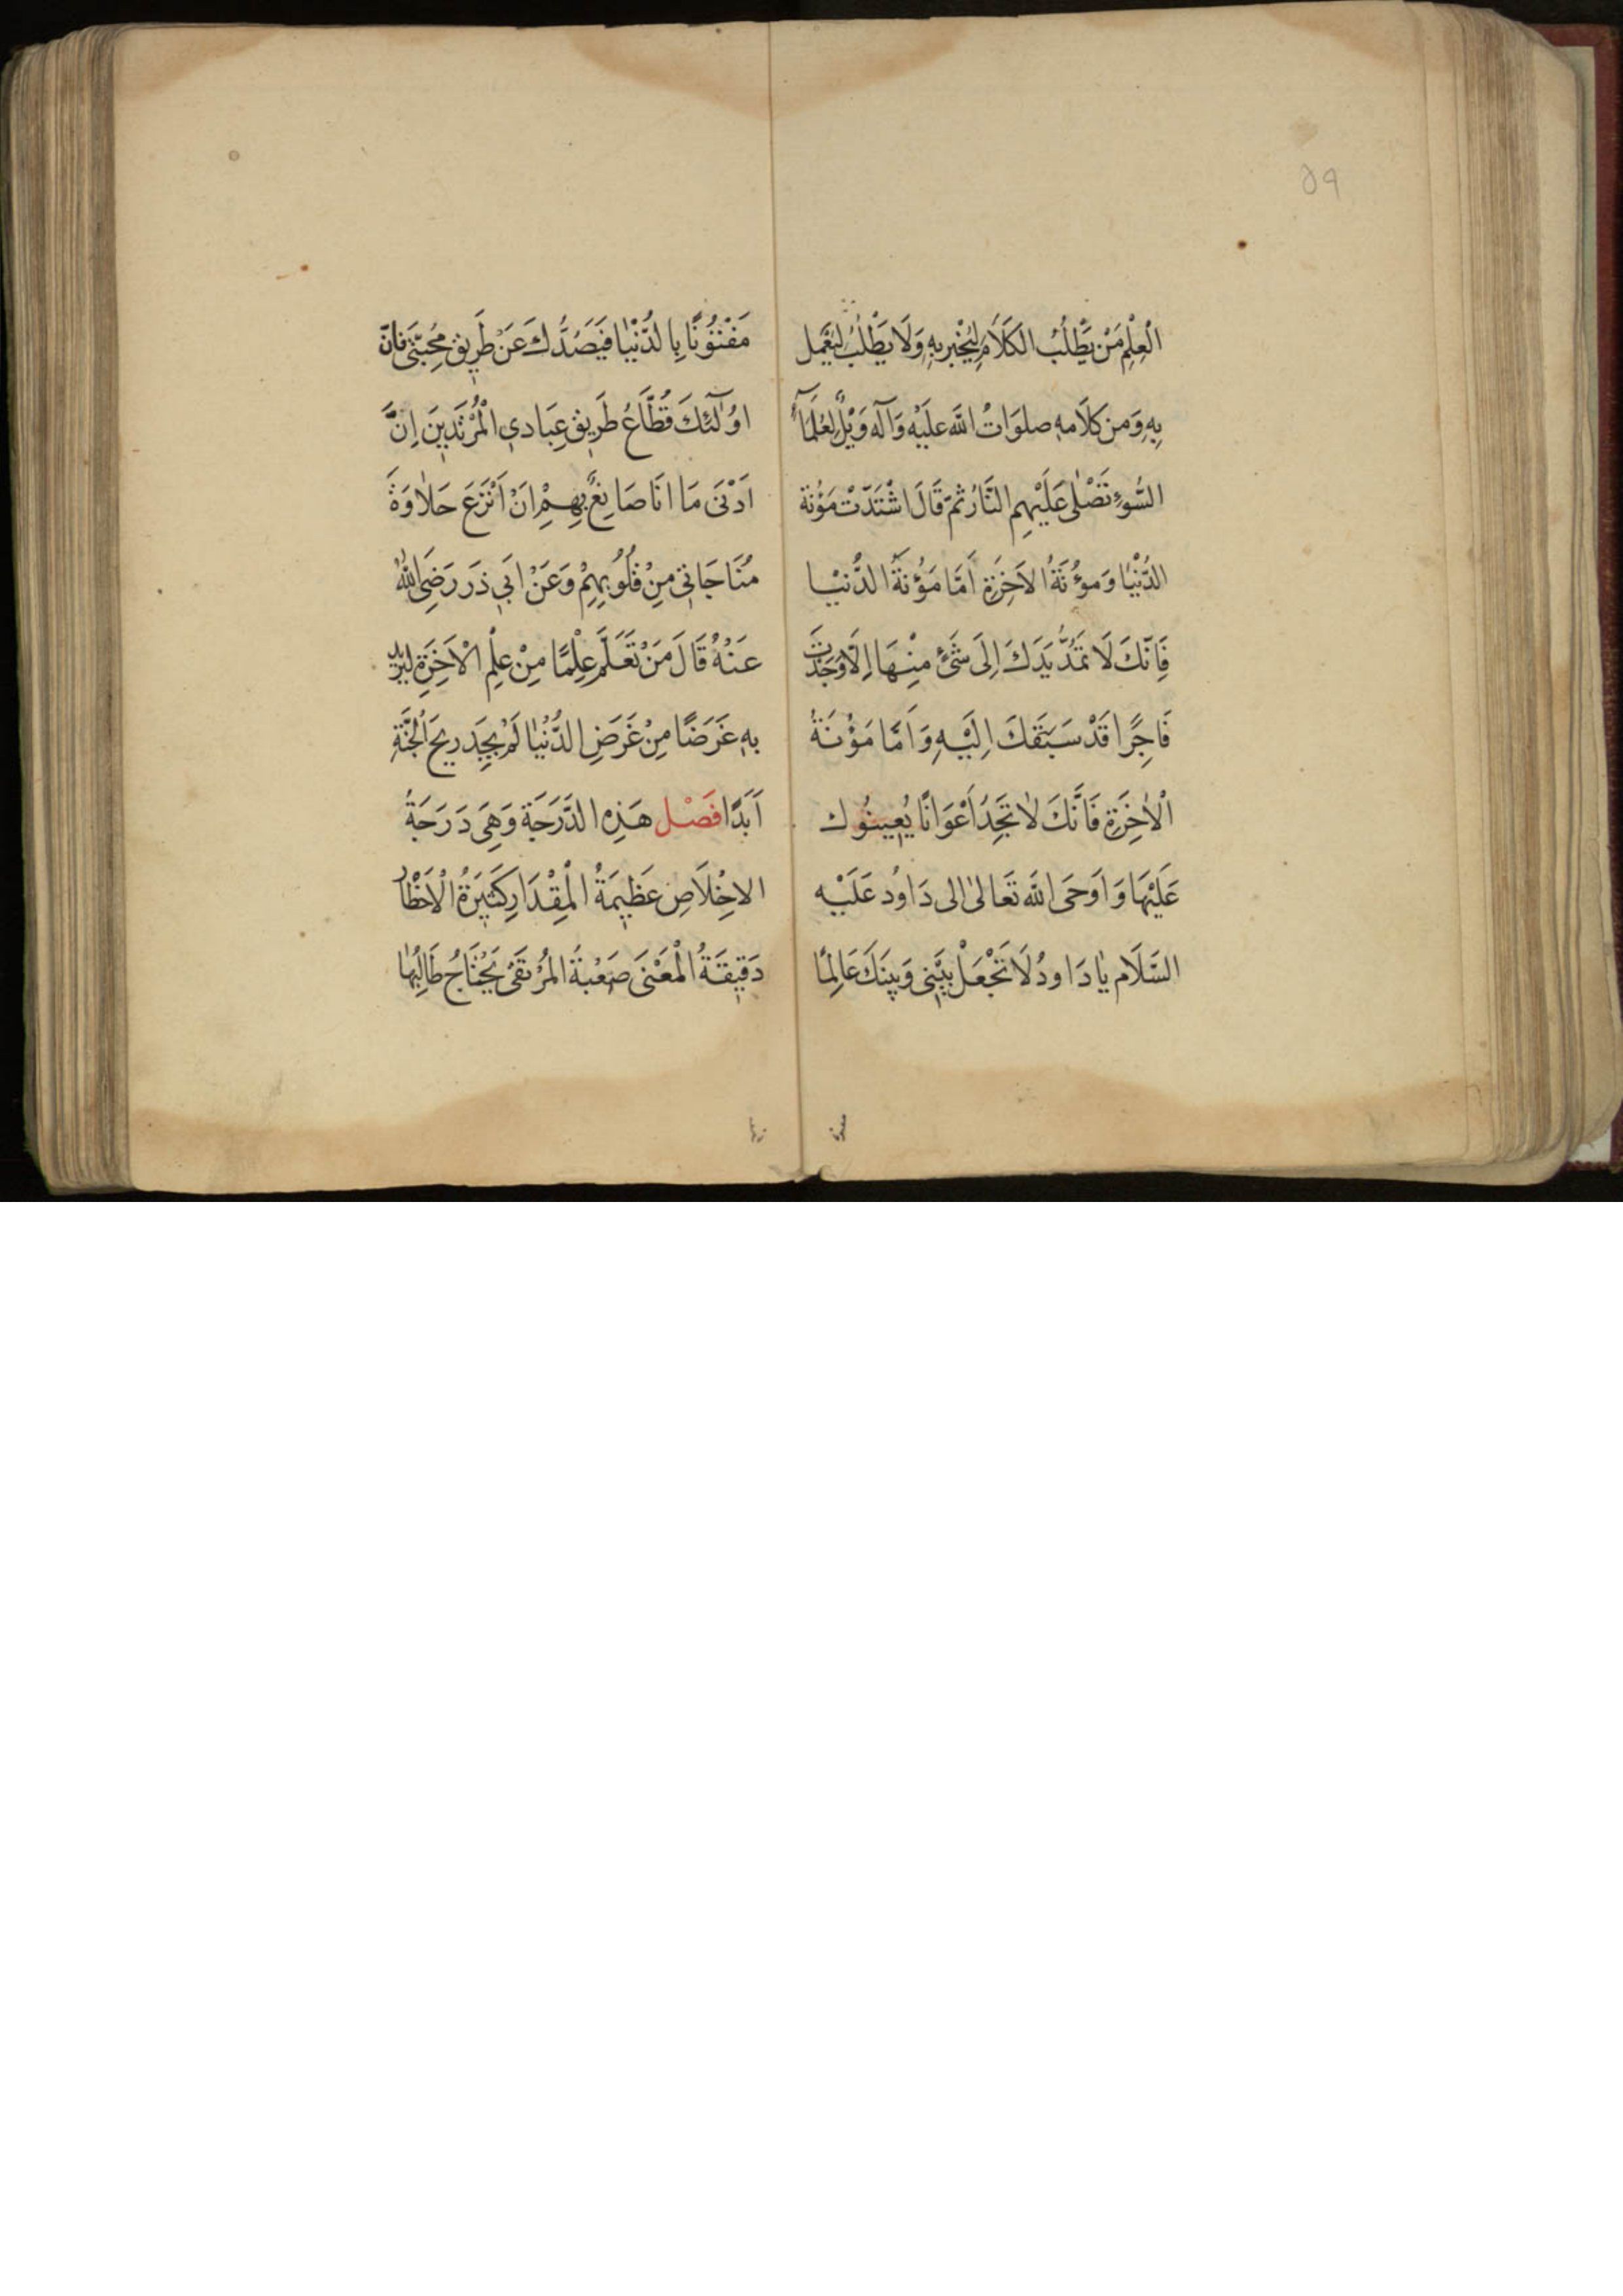 ٥٩
الْعِلْمِ مَنْ يَطْلُبُ الكَلَامَ لِيُخْبِرَ بِهِ وَلَا يَطْلُبُ لِيَعْمَلَ
بِهِ وَمِن كَلَامِهِ صلَوَاتُ اللَّه علَيْهِ وَآلِه وَيْلٌ لِعُلَمَآءِ
السُّوءِ تَصْلٰى عَلَيْهِمِ النَّارُ ثُمَّ قَالَ اشْتَدَّتْ مَؤُنَة
الدُّنْيَا وَمَؤُنَةُ الاَخِرَةِ اَمَّا مَؤُنَةُ الدُّنْيَا
فَاِنَّكَ لَا تَمُدُّ يَدَكَ اِلَى شَئٍ مِنْهَا اِلَّا وَجَدْتَ
فَاجِرًا قَدْ سَبَقَكَ اِلَيْهِ وَاَمَّا مَؤُنَةُ
الْاٰخِرَةِ فَاَنَّكَ لَا تَجِدُ اَعْوَانًا يُعِينُوك
عَلَيْهَا وَاَوحَى اللَّه تَعَالىٰ الى دَاوُد عَلَيْه
السَّلَام يٰا دَاودُ لَا تَجْعَلْ بَيْنِى وَبَيْنَكَ عَالِمًا
مَفْتُوُنًا بِالدُّنْيٰا فَيَصُدُّكَ عَنْ طَرِيقِ مَحَبَّتِى فَاِنَّ
اوُلٰٓئِكَ قُطَّاعُ طَرِيقِ عِبَادِي الْمُرْتَدِينَ اِنَّ
اَدْنَى مَا اَنَا صَانِعٌ بِهِمْ اَنْ اَنْزَعَ حَلَاوَةَ
مُنَاجَاتِى مِنْ قُلُوُبِهِمْ وَعَنْ اَبِي ذَر رَضِىَ اللّٰهُ
عَنْهُ قَالَ مَنْ تَعَلَّمَ عِلْمًا مِنْ عِلْمِ الْاَخِرَةِ لِيُرِيدَ
بِهِ غَرَضًا مِنْ غَرَضِ الدُّنْيٰا لَمْ يَجِدَ رِيحَ الْجَنَّةِ
اَبَدًا فَصْل هَذِهِ الدَّرَجَة وَهِىَ دَرَجَةُ
الاخِْلَاصِ عَظِيمَةُ الْمِقْدَارِ كَثِيرَةُ الْاَخْطَار
دَقِيقَةُ الْمَعْنَى صَعْبَةُ الْمُرْتَقَى يَحْتَاجُ طَالِبُهَا